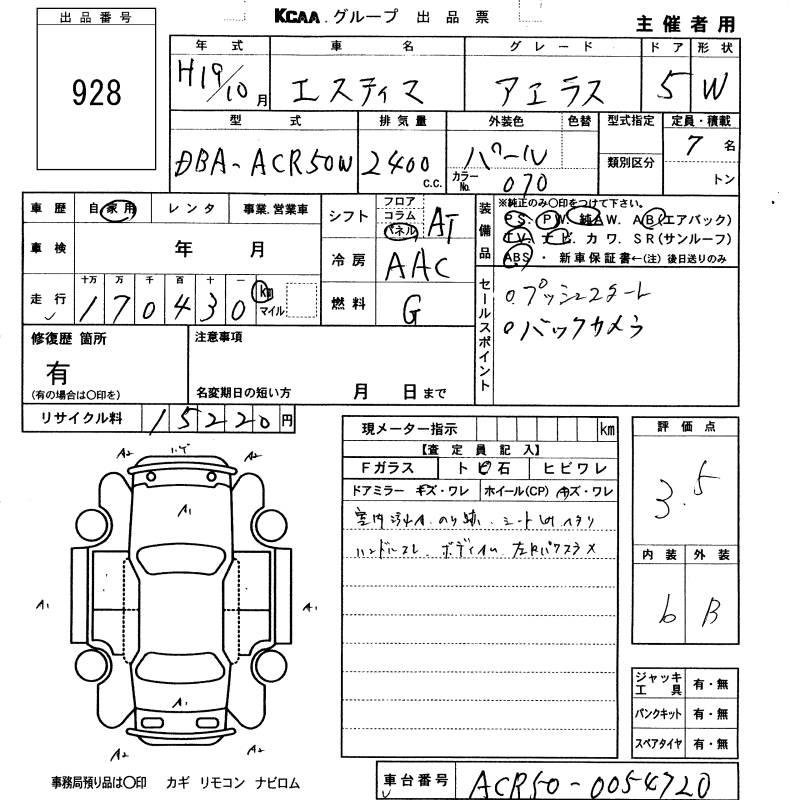 出品番号
KCAA グループ 出品票
主催者用
928
年式 車名 グレード ドア 形状
H19/10月 エスティマ アエラス 5 W
型式 排気量 外装色 色替 型式指定 定員・積載
DBA-ACR50W 2400 c.c. パール 7 名
類別区分
カラーNo. 070 トン
車歴 自家用 レンタ 事業.営業車
シフト フロア コラム パネル AT
装備品
※純正のみ〇印をつけて下さい。
PS. PW. 純AW. AB(エアバック)
TV. ナビ. カワ. SR(サンルーフ)
ABS ・ 新車保証書←(注)後日送りのみ
車検 年 月
冷房 AAC
走行 十万 万 千 百 十 一
170430 km マイル
燃料 G
セールスポイント
o プッシュスタート
o バックカメラ
修復歴 箇所
有
(有の場合は〇印を)
注意事項
名変期日の短い方 月 日まで
リサイクル料 15220円
現メーター指示 km
【査定員記入】
Fガラス トビ石 ヒビワレ
ドアミラー キズ・ワレ ホイール(CP) キズ・ワレ
室内汚れ. のり跡. シート
ハンドルスレ. ボディ
評価点
3.5
内装 外装
b B
A2 A2
A1
A1 A1
A1
A2 A2
ジャッキ工具 有・無
パンクキット 有・無
スペアタイヤ 有・無
事務局預り品は〇印 カギ リモコン ナビロム
車台番号 ACR50-0054720